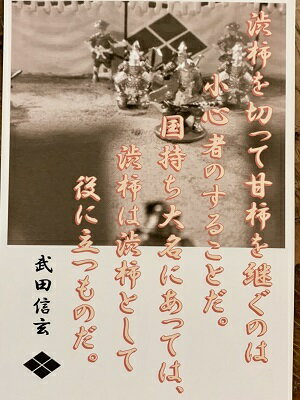 渋柿を切って甘柿を継ぐのは
小心者のすることだ。
国持ち大名にあっては、
渋柿は渋柿として
役に立つものだ。
武田信玄